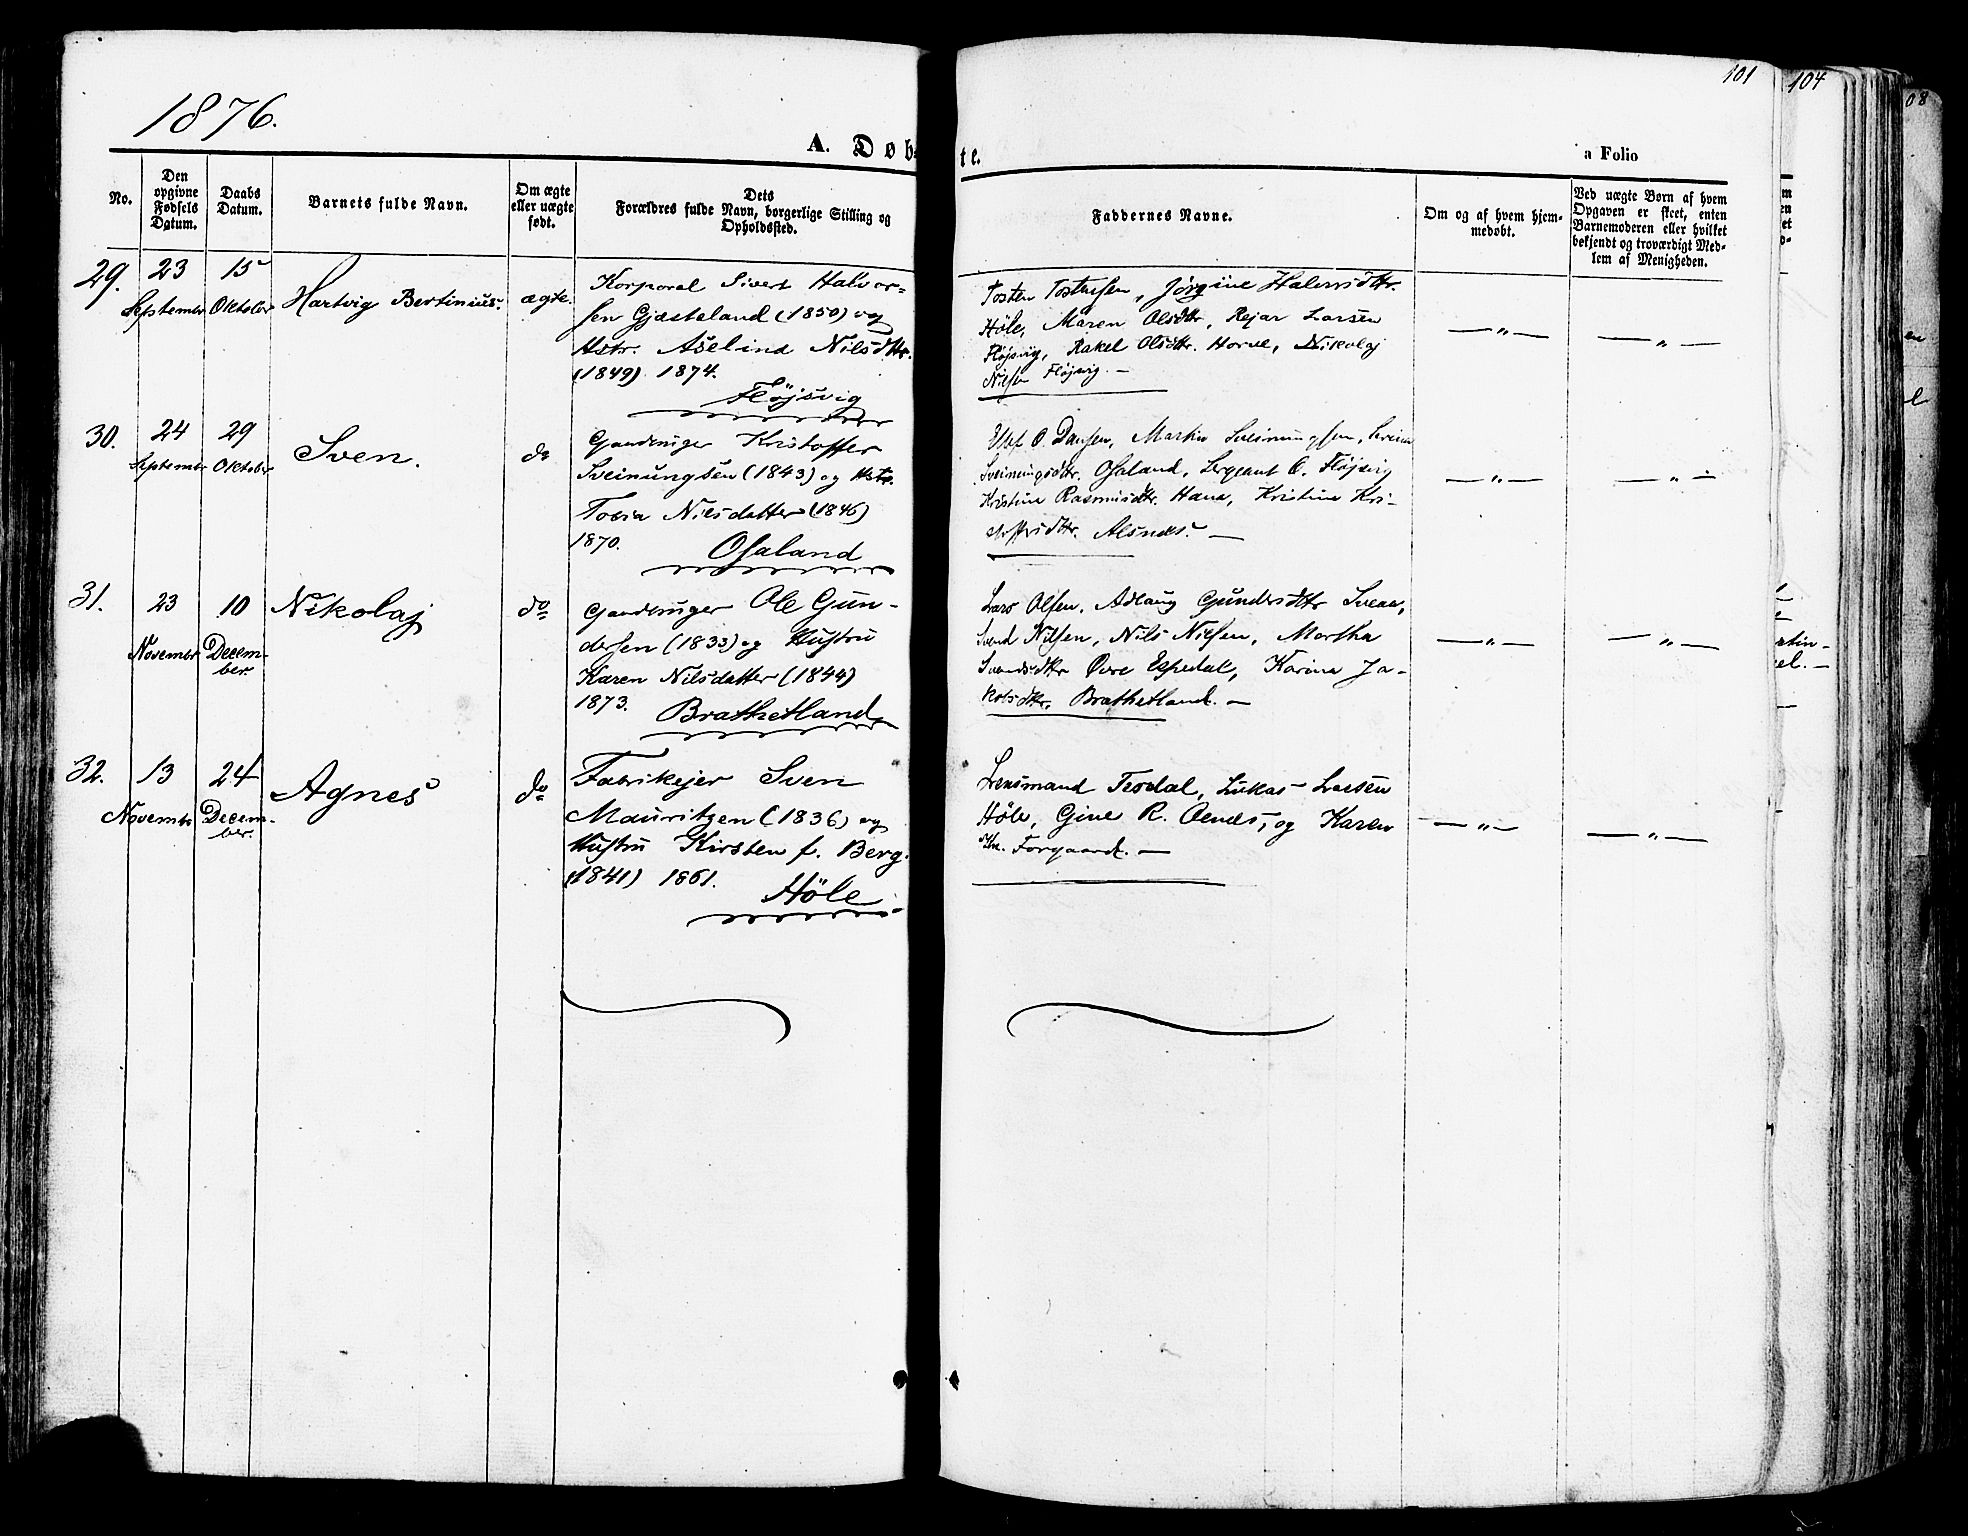 1876.
101
104
08
A. Døb-
te.
a Folio
No.
Den
opgivne
Fødsels
Datum.
Daabs
Datum.
Barnets fulde Navn.
Om ægte
eller uægte
født.
Dets
Forældres fulde Navn, borgerlige Stilling og
Opholdssted.
Faddernes Navne.
Om og af hvem hjem-
medøbt.
Ved uægte Børn af hvem
Opgaven er skeet, enten
Barnemoderen eller hvilket
bekjendt og troværdigt Med-
lem af Menigheden.
29.
23
September
15
Oktober
Hartvig Bertinius.
ægte.
Korporal Sivert Halvor-
sen Gjæsteland (1850) og
Hstr. Aselind Nilsdttr.
(1849) 1874.
Fløjsvig
Tosten Tostensen, Jørgine Halvorsdttr.
Høle, Maren Olsdttr, Rejar Larsen
Fløjsvig, Rakel Olsdttr. Horve, Nikolaj
Nilsen Fløjsvig. —
— „ —
— „ —
30.
24
September
29
Oktober
Sven.
do
Gaardbruger Kristoffer
Sveinungsen (1843) og Hstr.
Tobia Nilsdatter (1846)
1870.
Osaland
O. Dausen, Martin Sveinungsen,
Sveinungsdttr. Osaland, Sergeant O. Fløjsvig
Kristine Rasmusdttr. Hana, Kristine Kri-
stoffersdttr. Alsnes. —
— „ —
— „ —
31.
23
November
10
Decem-
ber.
Nikolaj
do
Gaardbruger Ole Gun-
dersen (1833) og Hustru
Karen Nilsdatter (1844)
1873.
Brathetland
Lars Olsen, Adlaug Gundersdttr
Svend Nilsen, Nils Nielsen, Martha
Svendsdttr Øvre Espedal, Karine Ja-
kobsdttr. Brathetland. —
— „ —
— „ —
32.
13
November
24
Decem-
ber.
Agnes
do
Fabrikejer Sven
Mauritzen (1836) og
Hustru Kirsten f. Berg.
(1841) 1861.
Høle
Lensmand Tesdal, Lukas Larsen
Høle, Gine R. Oenæs, og Karen
Forgaard. —
— „ —
— „ —